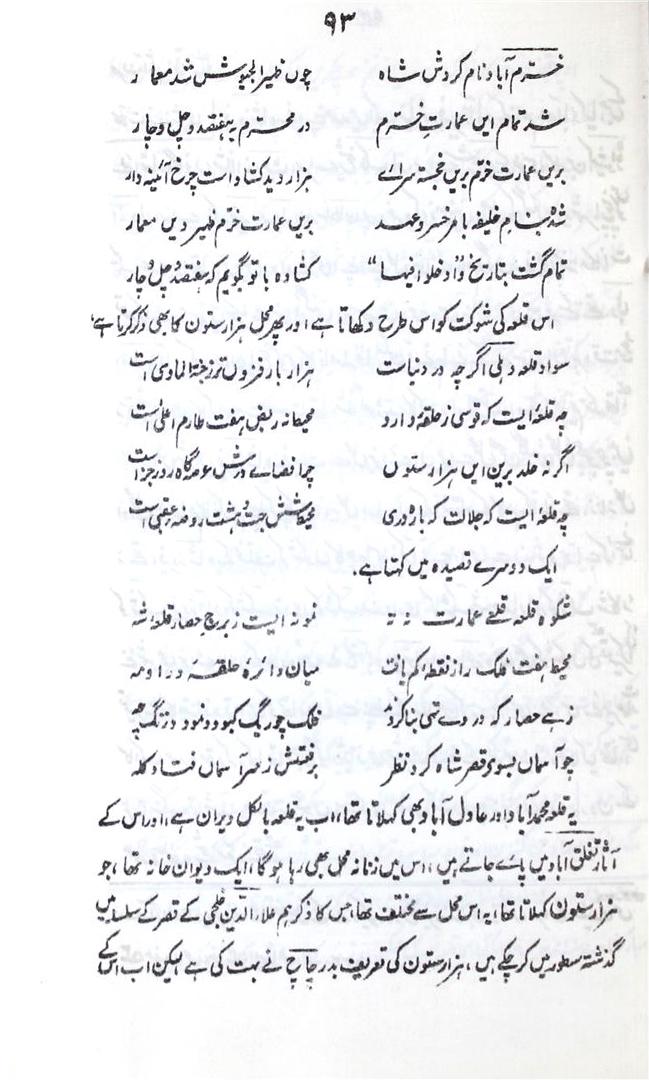 ۹۳
خرم آباد نام کردش شاہ چوں ظہیر الجیوش شد معمار
شد تمام ایں عمارتِ خرم در محرم بہفتصد و چل و چار
بریں عمارت خرم بریں خجستہ سرائے ہزار دید کشاد است چرخ آئینہ دار
بریں عمارت خرم ظہیر دیں معمار
تمام گشت بتاریخ و "ادخلوا فیہا" کشادہ با تو بگویم کہ ہفتصد و چل و چار
اس قلعہ کی شوکت کو اس طرح دکھاتا ہے اور پھر محل ہزار ستون کا بھی ذکر کرتا ہے،
سواد قلعہ دہلی اگرچہ در دنیاست ہزار بار فزوں تر ز جنۃ الماویٰ است
چہ قلعہ ایست کہ قوسی ز حلقۂ دارد محیط نہ ربض ہفت طارم اعلیٰ است
اگر نہ خلد بریں ایں ہزار ستوں چرا فضاے درش عرصہ گاہ روز جزا است
چہ قلعہ ایست کہ جلالت کہ باژ دری محیط شش جہت و ہشت روضہ عقبیٰ است
ایک دوسرے قصیدہ میں کہتا ہے.
شکوہ قلعہ عمارت نمونہ ایست ز برج حصار قلعہ شہ
محیط ہفت فلک را ز نقطہ کم یافت میان دائرۂ حلقہ در او مہ
زہے حصار کہ در وے تہی بنا کردند فلک چو ریگ کبود و نمود در تگ چہ
چو آسماں بسوی قصر شاہ کرد نظر برفتش ز سر آسماں فتاد کلہ
یہ قلعہ محمد آباد اور عادل آباد بھی کہلاتا تھا، اب یہ قلعہ بالکل ویران ہے، اور اس کے
آثار تغلق آباد میں پائے جاتے ہیں، اس میں زنانہ محل بھی رہا ہوگا، ایک دیوان خانہ تھا، جو
ہزار ستون کہلاتا تھا، یہ اس محل سے مختلف تھا، جس کا ذکر ہم علاؤ الدین خلجی کے قصر کے سلسلہ میں
گذشتہ سطور میں کر چکے ہیں، ہزار ستون کی تعریف بدر چاچ نے بہت کی ہے لیکن اب اس کے